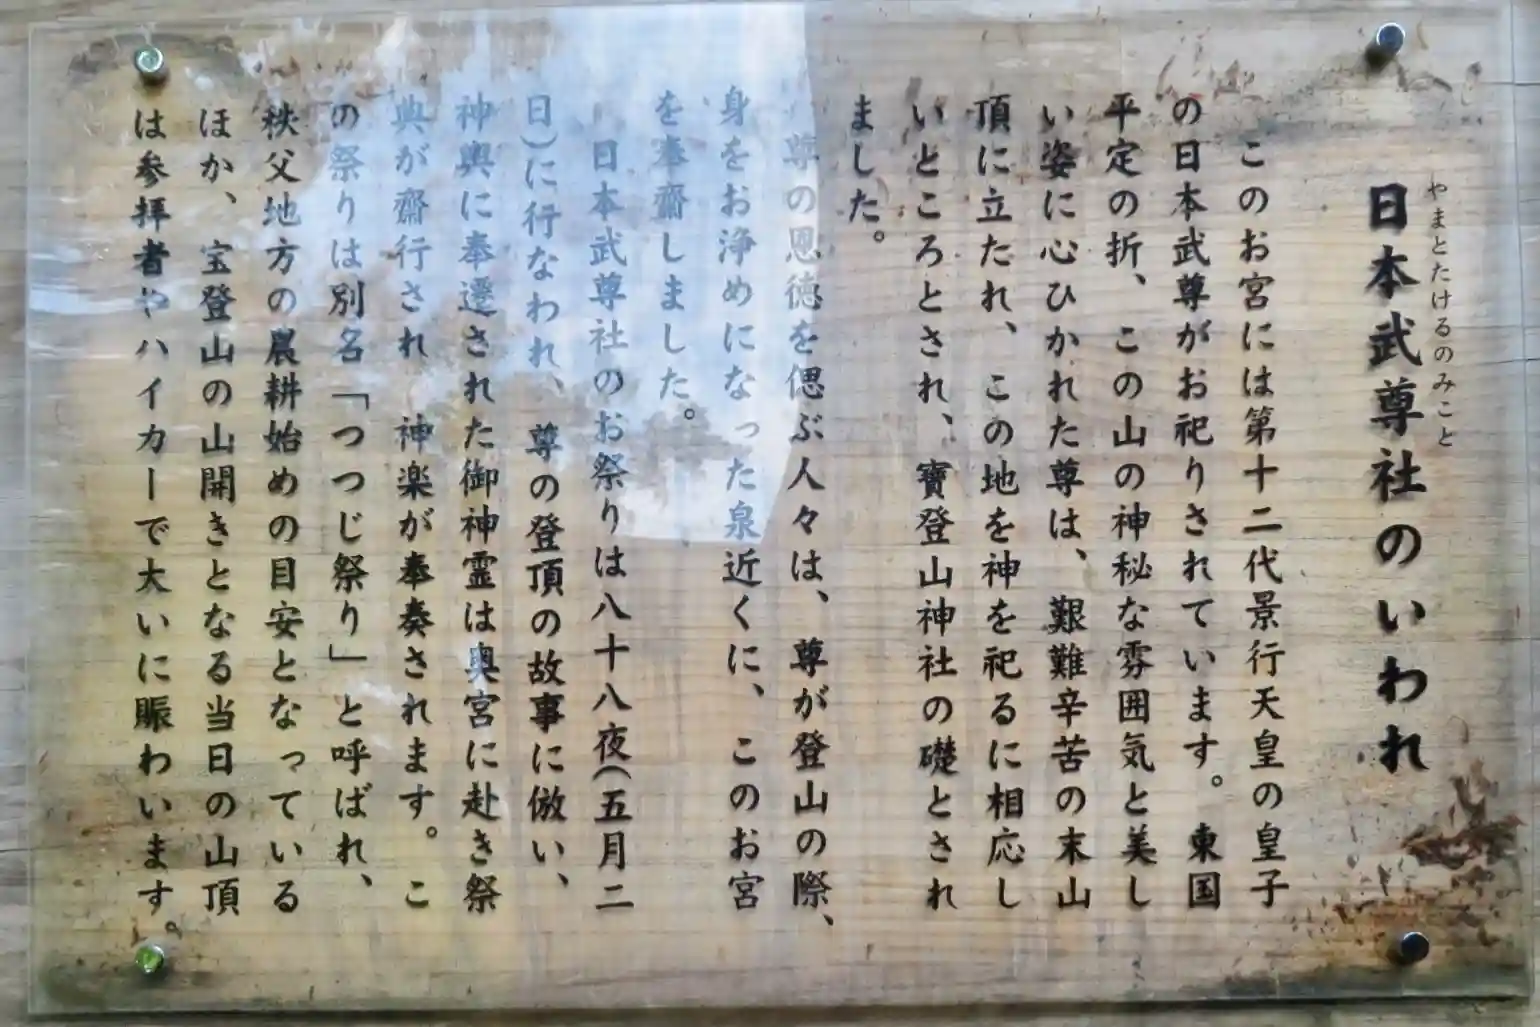 やまとたけるのみこと
日本武尊社のいわれ
このお宮には第十二代景行天皇の皇子
の日本武尊がお祀りされています。東国
平定の折、この山の神秘な雰囲気と美し
い姿に心ひかれた尊は、艱難辛苦の末山
頂に立たれ、この地を神を祀るに相応し
いところとされ、寶登山神社の礎とされ
ました。
尊の恩徳を偲ぶ人々は、尊が登山の際、
身をお浄めになった泉近くに、このお宮
を奉齋しました。
日本武尊社のお祭りは八十八夜(五月二
日)に行なわれ、尊の登頂の故事に倣い、
神輿に奉遷された御神霊は奥宮に赴き祭
典が齋行され 神楽が奉奏されます。こ
の祭りは別名「つつじ祭り」と呼ばれ、
秩父地方の農耕始めの目安となっている
ほか、宝登山の山開きとなる当日の山頂
は参拝者やハイカーで大いに賑わいます。